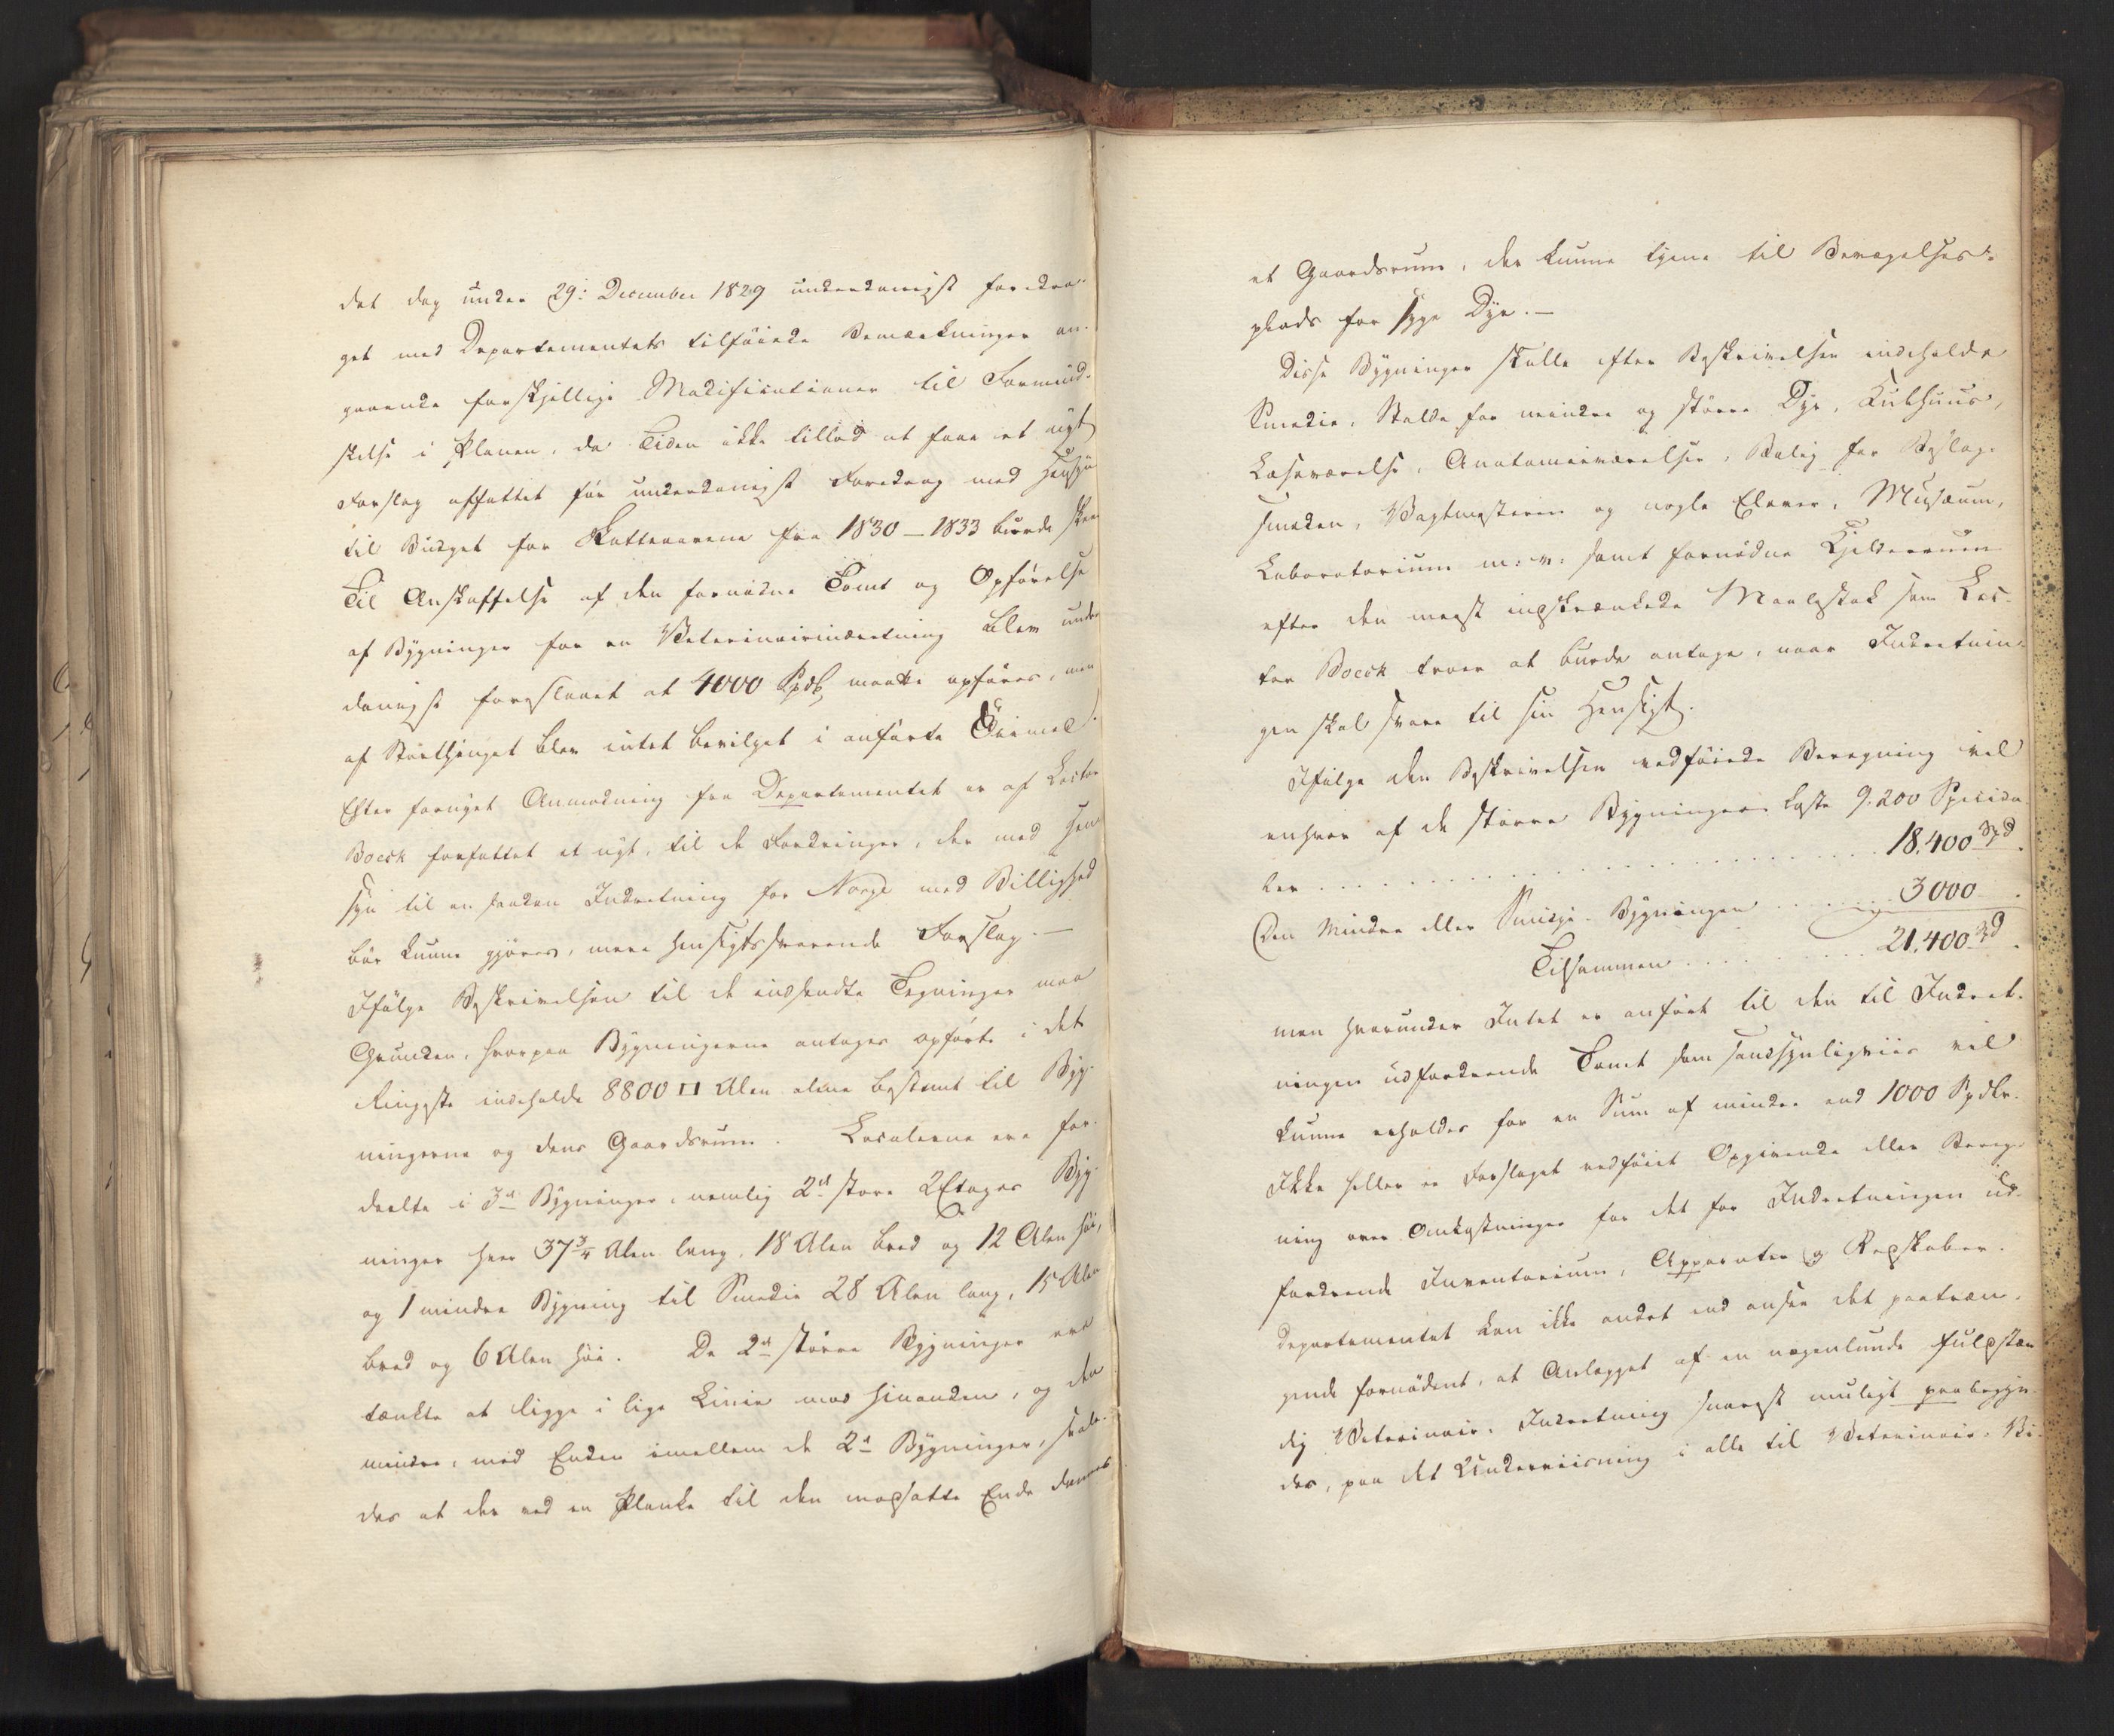 det dog under 29: December 1829 underdanigst foredra-
get med Departementets tilføiede Bemærkninger an-
gaaende forskjellige Modificationer til Formind-
skelse i Planen, da Tiden ikke tillod at faae et nyt
Forslag affattet før underdanigst Foredrag med Hensyn
til Budget for Skatteaarene fra 1830 - 1833 burde skee
Til Anskaffelse af den fornødne Tomt og Opførelse
af Bygninger for en Veterinairindretning blev under
danigst foreslaaet at 4000 Spdlr maatte opføres, men
af Storthinget blev intet bevilget i anførte Øiemed.
Efter fornyet Anmodning fra Departementet er af Lector
Boeck forfattet et nyt, til de Fordringer, der med Hen-
syn til en saadan Indretning for Norge med Billighed
bør kunne gjøres, mere hensigtssvarende Forslag. —
Ifølge Beskrivelsen til de indsendte Tegninger maa
Grunden, hvorpaa Bygningerne antages opførte i det
Ringeste indeholde 8800 □ Alen alene bestemt til Byg-
ningerne og dens Gaardsrum. Localerne ere for-
deelte i 3de Bygninger, nemlig 2de store 2 Etages Byg-
ninger hver 37¾ Alen lang, 18 Alen bred og 12 Alen høi,
og 1 mindre Bygning til Smedie 28 Alen lang, 15 Alen
bred og 6 Alen høi. De 2de større Bygninger ere
tænkte at ligge i lige Linie mod hinanden, og den
mindre, med Enden imellem de 2de Bygninger, saale-
des at der ved en Planke til den modsatte Ende dannes
et Gaardsrum, der kunne tjene til Bevægelses-
plads for syge Dyr. —
Disse Bygninger skulle efter Beskrivelsen indeholde
Smedie, Stalde for mindre og større Dyr, Kulhuus,
Læseværelse, Anatomieværelser, Bolig for Beslag-
smeden, Vagtmesteren og nogle Elever, Musæum,
Laboratorium m: v: samt fornødne Kjelderrum
efter den meest indskrænkede Maalestok som Lec-
tor Boeck troer at burde antage, naar Indretnin-
gen skal svare til sin Hensigt.
Ifølge den Beskrivelsen vedføiede Beregning vil
enhver af de større Bygninger koste 9.200 Specieda-
ler . . . . . . . . . . 18.400 Spd.
Den mindre eller Smedje-Bygningen . . . . . 3000 .
Tilsammen . . . . . . 21.400 Spd.
men hvorunder Intet er anført til den til Indret-
ningen udfordrende Tomt som sandsynligviis vil
kunne erholdes for en Sum af mindre end 1000 Spdlr.
Ikke heller er Forslaget vedføiet Opgivende eller Bereg-
ning over Omkostninger for det for Indretningen ud-
fordrende Inventarium, Apparater og Redskaber.
Departementet kan ikke andet end ansee det paatræn-
gende fornødent, at Anlægget af en nogenlunde fuldstæn
dig Veterinair-Indretning snarest muligt paabegyn-
des, paa det Underviisning i alle til Veterinair-Vi-